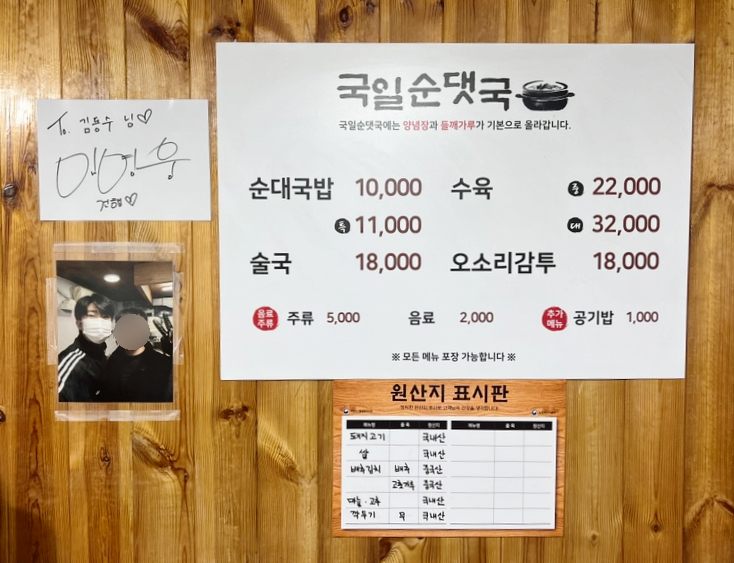 To. 김동수 님♡
임영웅
건행♡
국일순댓국
국일순댓국에는 양념장과 들깨가루가 기본으로 올라갑니다.
순대국밥 10,000
특 11,000
술국 18,000
수육 중 22,000
대 32,000
오소리감투 18,000
음료 주류 주류 5,000 음료 2,000 추가 메뉴 공기밥 1,000
※ 모든 메뉴 포장 가능합니다 ※
원산지 표시판
메뉴명 품목 원산지 메뉴명 품목 원산지
돼지고기 국내산
쌀 국내산
배추김치 배추 중국산
고춧가루 중국산
마늘·고추 국내산
깍두기 무 국내산